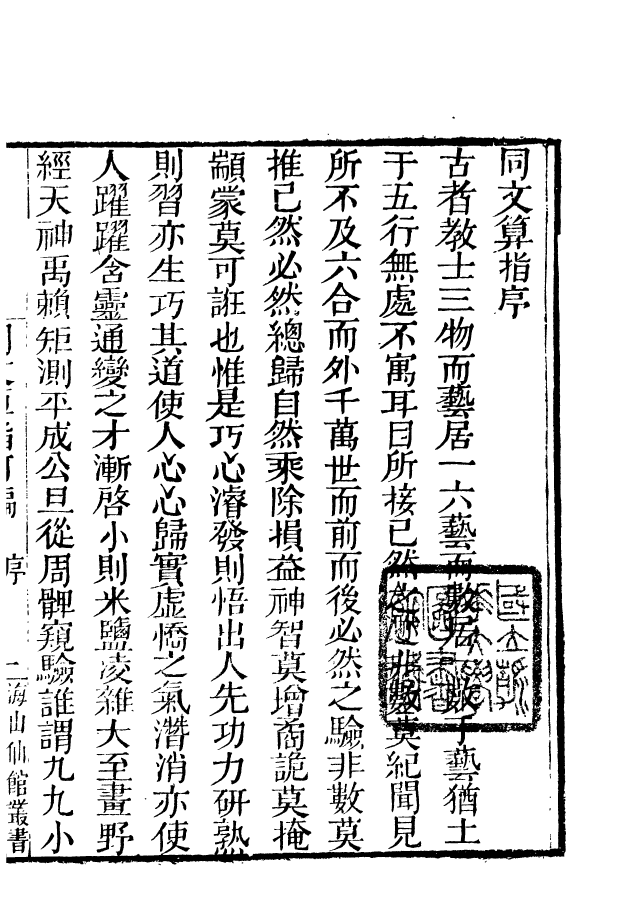 同文算指序
古者教士三物而藝居一六藝而數居一數于藝猶土
于五行無處不寓耳目所接已然之迹非數莫紀聞見
所不及六合而外千萬世而前而後必然之驗非數莫
推已然必然總歸自然乘除損益神智莫增矞詭莫掩
顓蒙莫可誑也惟是巧心濬發則悟出人先功力研熟
則習亦生巧其道使人心心歸實虛憍之氣潛消亦使
人躍躍含靈通變之才漸啓小則米鹽凌雜大至畫野
經天神禹賴矩測平成公旦從周髀窺驗誰謂九九小
序 二 海山仙館叢書